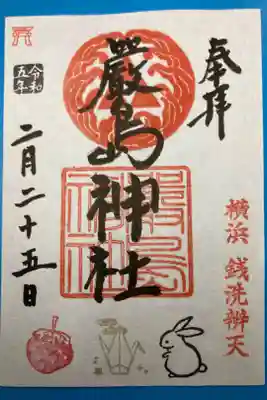 奉拝
横浜 銭洗辨天
嚴島神社
令和
五年
二月二十五日